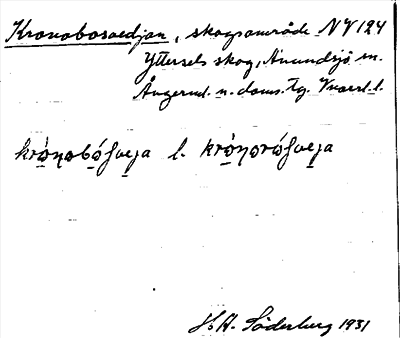 Kronobosvedjan, skogsområde NV 124
Yttersels skog, Anundsjö sn.
Ångerml. n. doms. tg. Vnorrl. l.
krònobósveja l. krònorósveja
H. A. Söderberg 1931